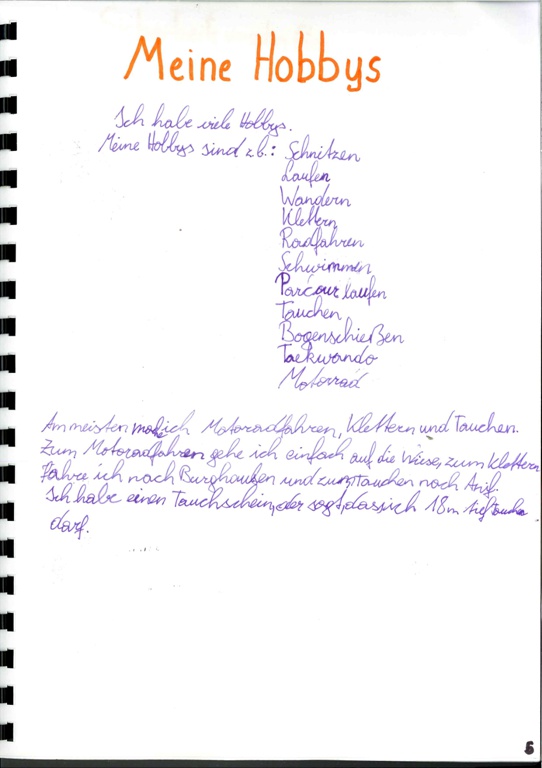 Meine Hobbys
Ich habe viele Hobbys.
Meine Hobbys sind z.b.: Schnitzen
Laufen
Wandern
Klettern
Radfahren
Schwimmen
Parcour laufen
Tauchen
Bogenschießen
Taekwando
Motorrad
Am meisten mache ich Motoradfahren, Klettern und Tauchen.
Zum Motoradfahren gehe ich einfach auf die Weise, zum Klettern
fahre ich nach Burghauben und zum Tauchen nach Anif.
Ich habe einen Tauchschein, der sagt, dass ich 18m tief tauchen
darf.
5